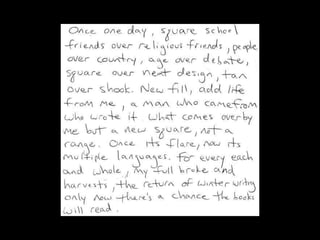 Once one day, square school
friends over religious friends, people
over country, age over debate,
square over next design, tan
over shook. New fill, add life
from me, a man who came from
who wrote it what comes over by
me but a new square, not a
range. Once its flare, now its
multiple languages. For every each
and whole, my full broke and
harvests, the return of winter writing
only now there's a chance the books
will read.